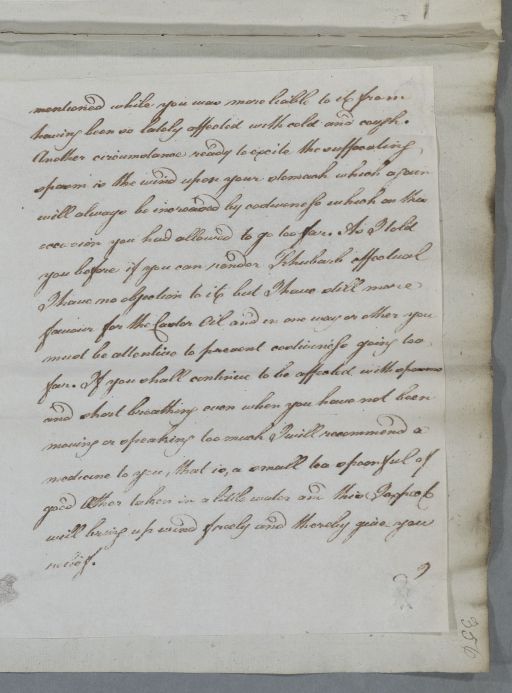 mentioned while you was more liable to it from
having been so lately affected with cold and cough.
Another circumstance ready to excite the suffocating
spasm is the wind upon your stomach which again
will always be increased by costiveness which on this
occasion you had allowed to go too far. As I told
you before if you can render Rhubarb effectual
I have no objection to it but I have still more
favour for the Castor Oil and in one way or other you
must be attentive to prevent costiveness going too
far. If you shall continue to be affected with spasms
and short breathing even when you have not been
moving or speaking too much I will recommend a
medicine to you, that is, a small tea spoonful of
good Ether taken in a little water and this I expect
will bring up wind freely and thereby give you
relief.
I
356